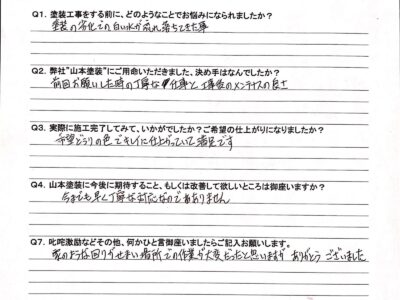 Q1. 塗装工事をする前に、どのようなことでお悩みになられましたか？
塗装の劣化での白い水が流れ落ちてきた事
Q2. 弊社"山本塗装"にご用命いただきました、決め手はなんでしたか？
前回お願いした時の丁寧な仕事と工事後のメンテナンスの良さ
Q3. 実際に施工完了してみて、いかがでしたか？ご希望の仕上がりになりましたか？
希望どうりの色でキレイに仕上がっていて満足です
Q4. 山本塗装に今後に期待すること、もしくは改善して欲しいところは御座いますか？
今までも早く丁寧な対応なので ありません
Q7. 叱咤激励などその他、何かひと言御座いましたらご記入お願いします。
家のような回りがせまい場所での作業が大変だったと思いますが ありがとうございました